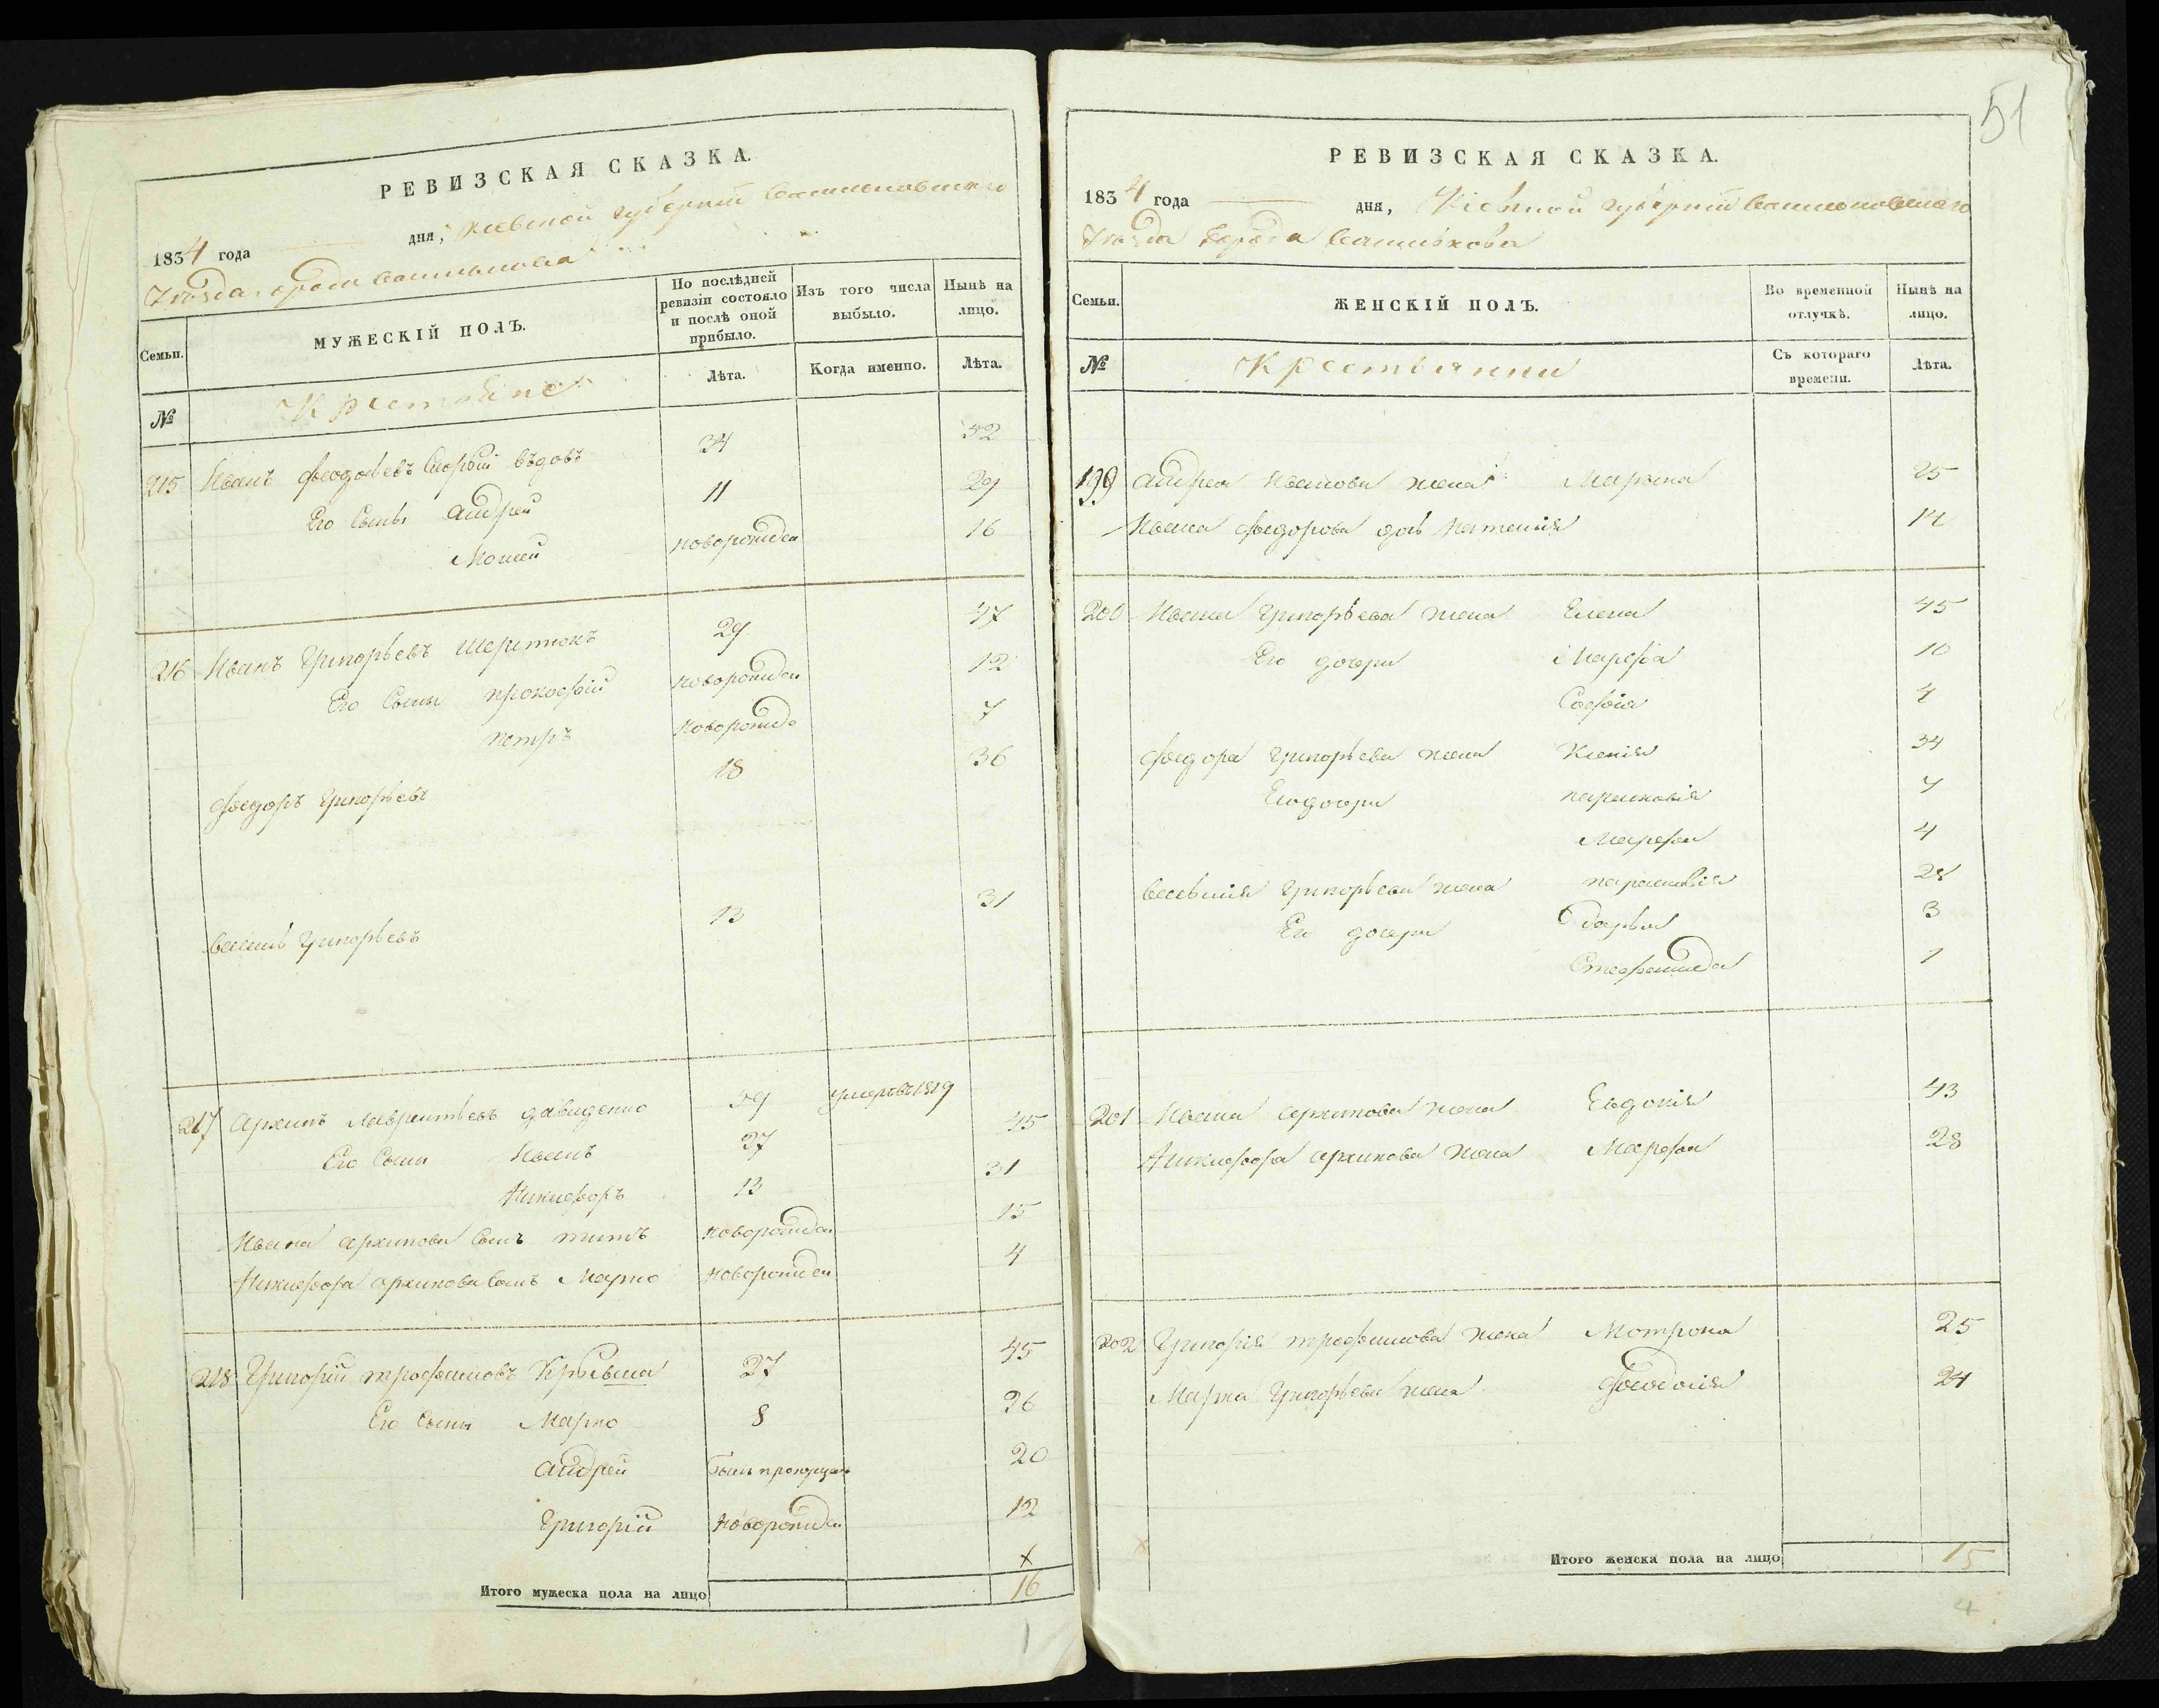 РЕВИЗСКАЯ СКАЗКА.
1834 года дня, Киевской губерніи Васильковскаго
Уѣзда города Василькова
Семьи. МУЖЕСКІЙ ПОЛЪ. По послѣдней ревизіи состояло и послѣ оной прибыло. Изъ того числа выбыло. Нынѣ на лицо.
№ Крестьяне Лѣта. Когда именно. Лѣта.
215 Иванъ Феодоровъ вдовъ 34 52
Его Сынъ Андрей 11 29
Мойсей новорожден 16
216 Иванъ Григорьевъ Шереметюкъ 29 47
Его Сыны прокофій новорожден 12
петръ новорожде 7
Федоръ Григорьевъ 18 36
василь Григорьевъ 13 31
217 Архипъ Лаврентьевъ давиденко 59 умеръ въ 1819
Его Сыны Иванъ 27 45
Никифоръ 13 31
Ивана архипова Сынъ титъ новорожден 15
Никифора архипова Сынъ Марко новорожден 4
218 Григорій трофимовъ 27 45
Его Сыны Марко 8 26
андрей былъ пропущенъ 20
Григорій новорожден 12
х
Итого мужеска пола на лицо 16
1
51
РЕВИЗСКАЯ СКАЗКА.
1834 года дня, Кіевской губерніи Васильковскаго
Уѣзда Города Василькова
Семьи. ЖЕНСКІЙ ПОЛЪ. Во временной отлучкѣ. Нынѣ на лицо.
№ Крестьянки Съ котораго времени. Лѣта.
199 Андрея Иванова жена Марина 25
Ивана Федорова дочь 14
200 Ивана Григорьева жена Елена 45
Его дочери Марфа 10
Софія 4
Федора Григорьева жена Ксенія 34
Его дочери парасковія 7
Марфа 4
василія Григорьева жена парасковія 28
Его дочери Дарья 3
Стефанида 1
201 Ивана архипова жена Евдокія 43
Никифора архипова жена Марфа 28
202 Григорія трофимова жена Мотрона 25
Марка Григорьева жена Феодосія 24
х
Итого женска пола на лицо 15
4